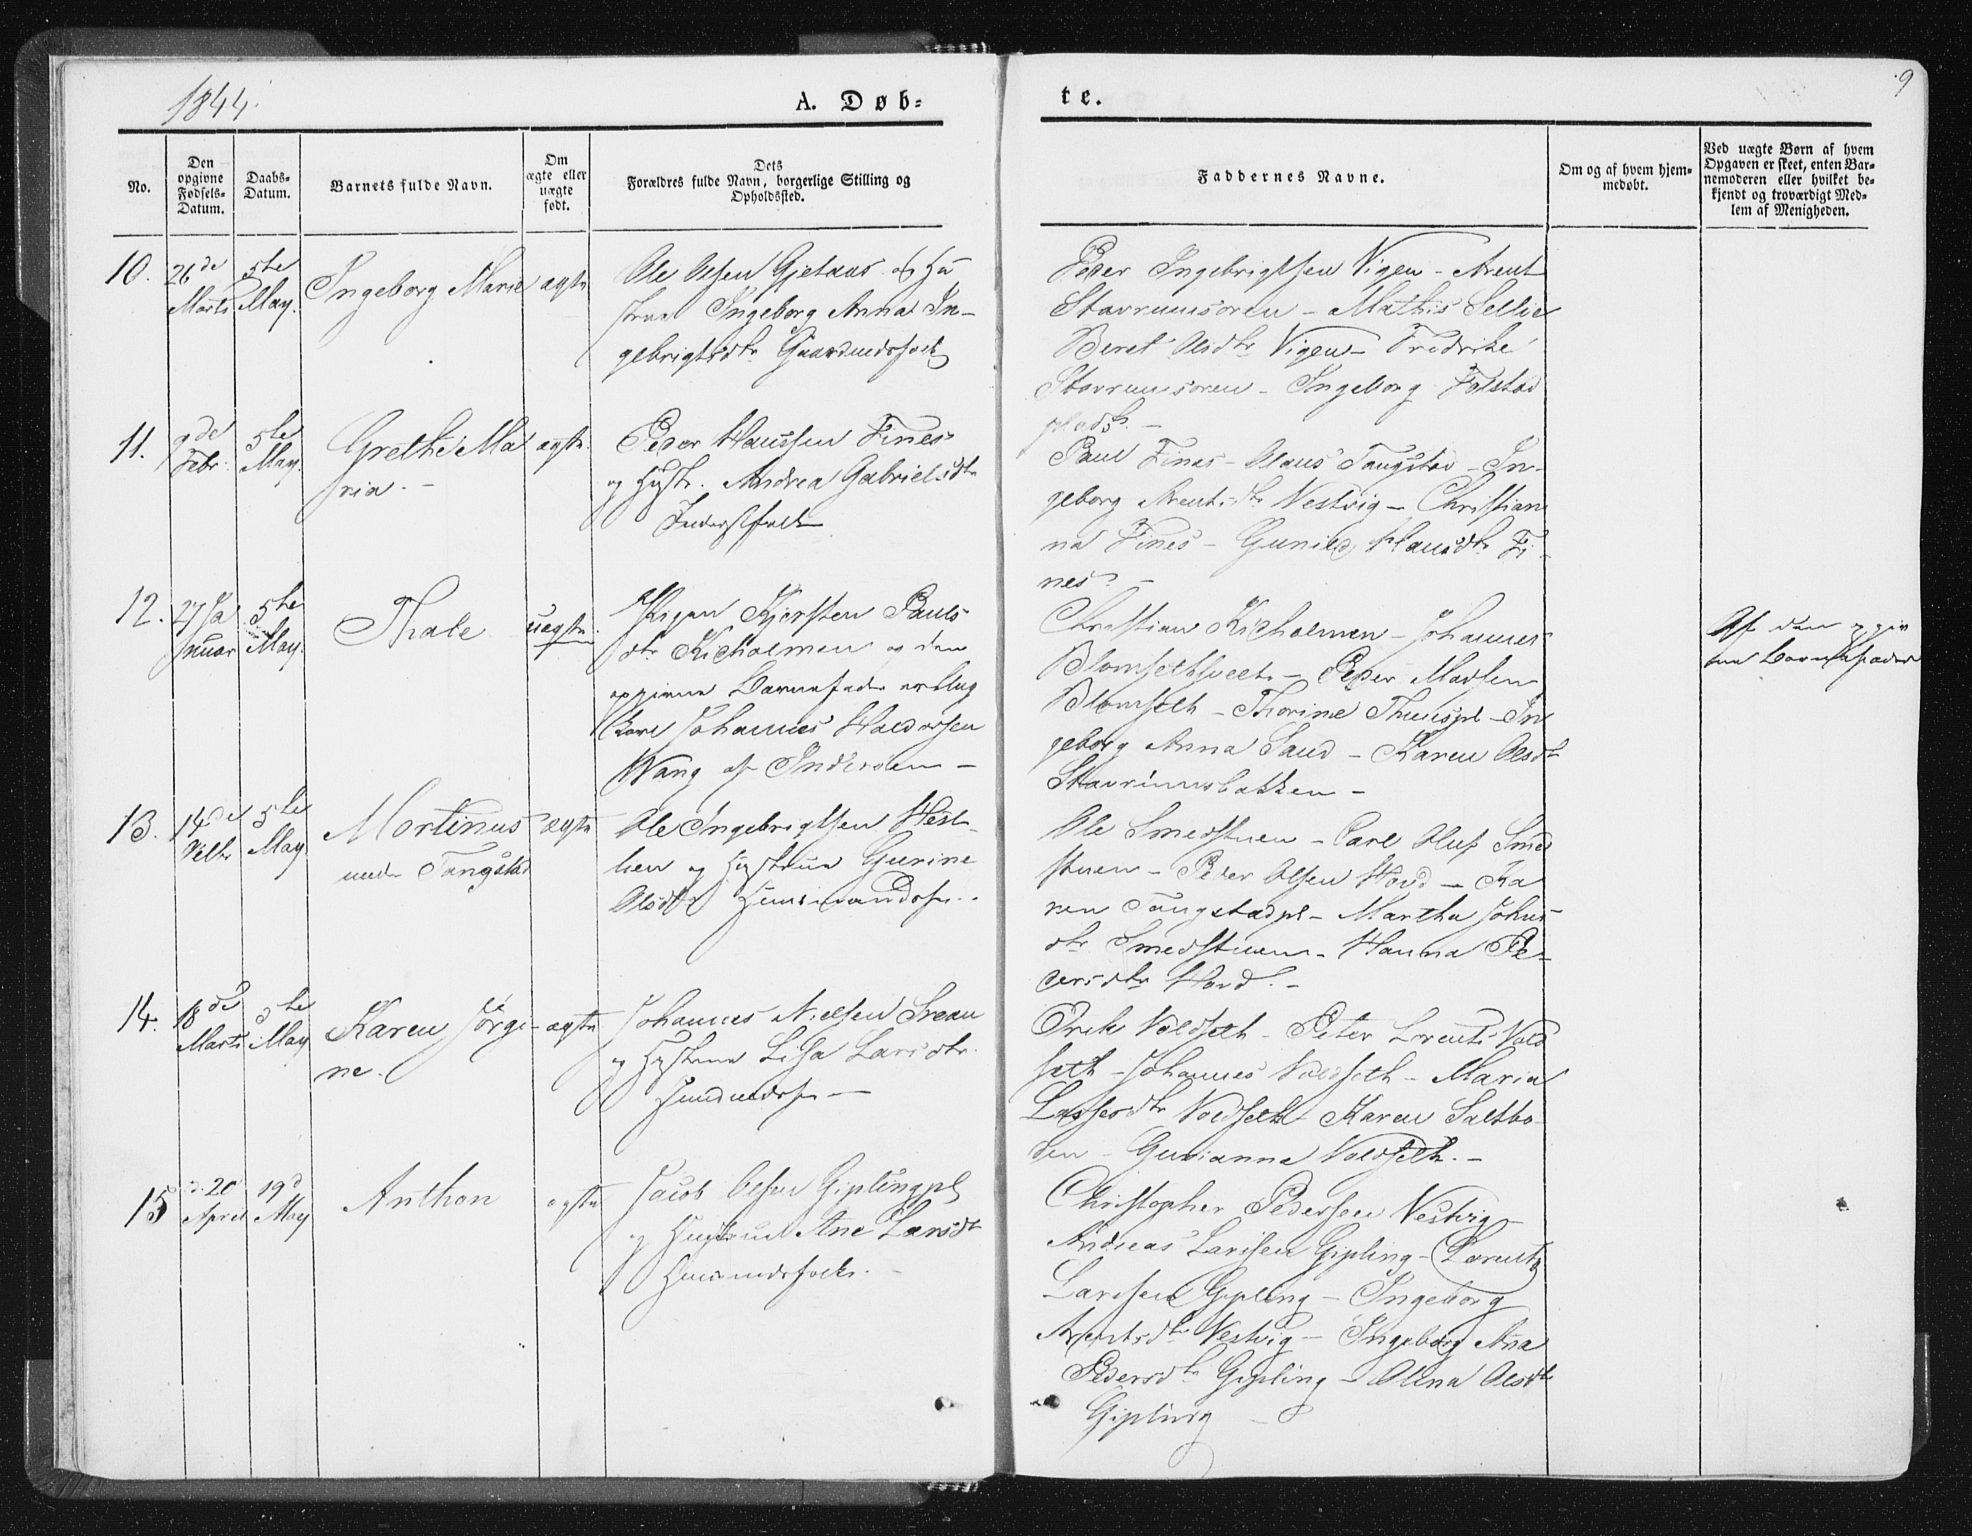 1844.
A. Døb-
te.
9
No.
Den opgivne Fødsels-Datum.
Daabs-Datum.
Barnets fulde Navn.
Om ægte eller uægte født.
Dets Forældres fulde Navn, borgerlige Stilling og Opholdssted.
Faddernes Navne.
Om og af hvem hjem-medøbt.
Ved uægte Børn af hvem Opgaven er skeet, enten Bar-nemoderen eller hvilket be-kjendt og troværdigt Med-lem af Menigheden.
10.
26de
Marts
5te
May.
Ingeborg Marie
ægte
Ole Olsen Gjetaas og Hu
strue Ingeborg Anna In-
gebrigtsdtr Gaardmdsfolk
Peder Ingebrigtsen Vigen - Arent
Stavrumsøren - Mathis Sellie
Beret Olsdtr Vigen - Fredrike
Stavrumsøren - Ingeborg Følstad
11.
9de
Febr.
5te
May.
Grethe Ma
ria. -
ægte.
Peder Hanssen Fines
og Hustr. Andrea Gabrielsdtr
Inderstfolk
Paul Fines - Olaus Tangstad - In-
geborg Arentsdtr Nestvig - Christian
na Fines - Gunild Hansdtr Fi-
nes. -
12.
27 Ja
nuar
5te
May.
Thale
uægte.
Pigen Kjersten Pauls
dtr Kirkholmen og den
opgivne Barnefader er Ung
karl Johannes Haldorsen
Wang af Inderøen -
Christian Kirkholmen - Johannes
Blomsethhvelt - Peder Madsen
Blomseth - Thorine Thuuspl - In
geborg Anna Sand - Karen Olsdtr
Stavrumsbakken -
Af den opgiv
ne Barnefader
13.
14de
5te
May
Mortinus
ægte
Ole Ingebrigtsen Hest-
og Hustrue Gurine
Olsdtr Huusmandsf..
Ole Smedstuen - Carl Oluf Smed
stuen - Peder Olsen Hovd - Ka
ren Tangstadpl - Martha Johns
dtr Smedstuen - Hanna Pe-
dersdtr Hovd. -
14.
18de
Marts
5te
May
Karen Jørgi-
ne.
ægte
Johannes Nielsen Sreem
og Hustrue Lisa Larsdtr.
Huusmdsf -
Erik Voldseth - Peter Lorents Vold
seth - Johannes Voldseth - Maria
Lassesdtr Voldseth - Karen Saltbo-
den - Gurianna Voldseth. -
15
d. 20
April
19d
May
Anthon
ægte
Jacob Olsen Giplingpl
og Hustrue Ane Larsdtr
Huusmdsfolk. -
Christopher Pedersen Nestvig -
Andreas Larssen Gipling - Lorentz
Larssen Gipling - Ingeborg
Arentsdtr Nestvig - Ingeborg Ana
Pedersdtr Gipling - Olina Olsdtr
Gipling -